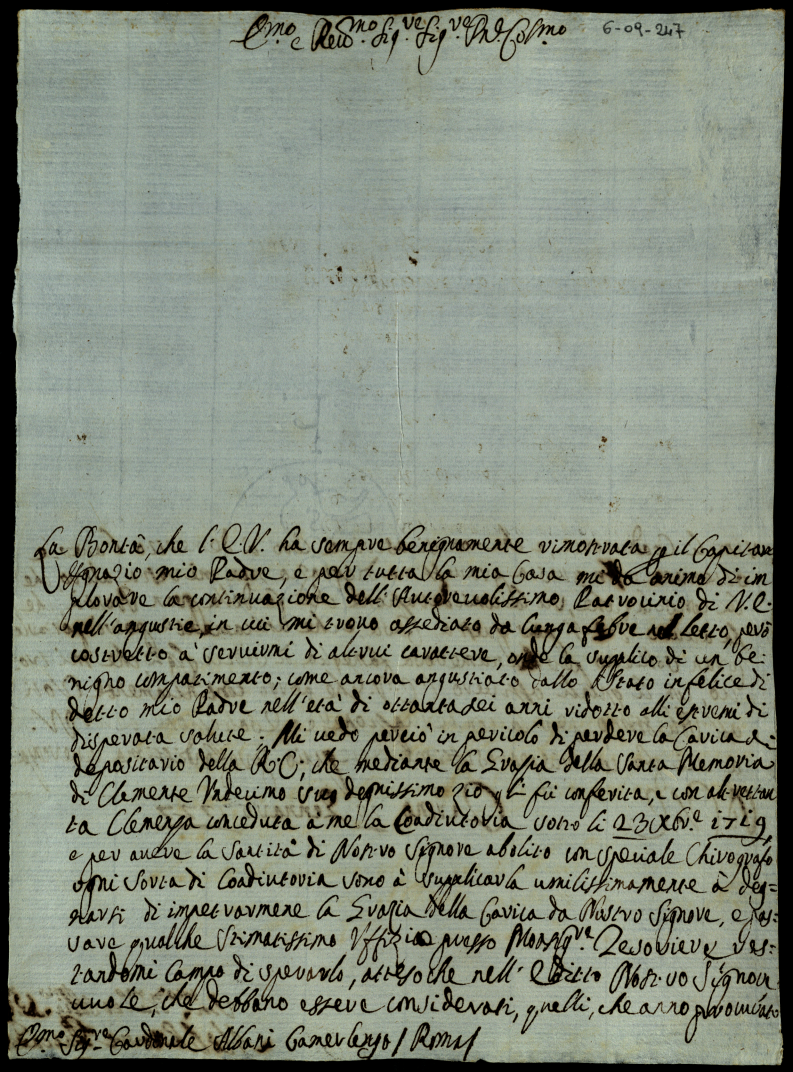 Em.mo e Reu.mo Sig.re Sig.re Pne Col.mo
6-09-247
La Bontà, che l'E.V. ha sempre benignamente rimostrata p il Capitan
Ignazio mio Padre, e per tutta la mia Casa mi dà animo di im
plorare la continuazione dell'Autoreuolissimo Patrocinio di V.E.
nell'angustie, in cui mi trouo assediato da lunga febre nel letto, però
costretto à seruirmi di altrui carattere, onde la supplico di un be:
nigno compatimento; come ancora angustiato dallo stato infelice di
detto mio Padre nell'età di ottantasei anni ridotto alli estremi di
disperata salute. Mi uedo perciò in pericolo di perdere la Carica di
depositario della R.C; che mediante la Grazia della Santa Memoria
di Clemente Undecimo suo degnissimo zio li fù conferita, e con altrettan
ta Clemenza conceduta à me la Coadiutoria sotto li 23 Xbr.e 1719,
e per auere la Santità di Nostro Signore abolito con speciale Chirografo
ogni sorta di Coadiutoria sono à supplicarla umilissimamente à deg=
narsi di impetrarmene la Grazia della Carica da Nostro Signore, e pas=
sare qualche stimatissimo Uffizio presso Monsig.re Tesoriere res=
tandomi Campo di sperarlo, attesoche nell'Editto Nostro Signore
uuole, che debbano essere considerati, quelli, che anno
Em.mo Sig.re Cardinale Albani Camerlengo / Roma /